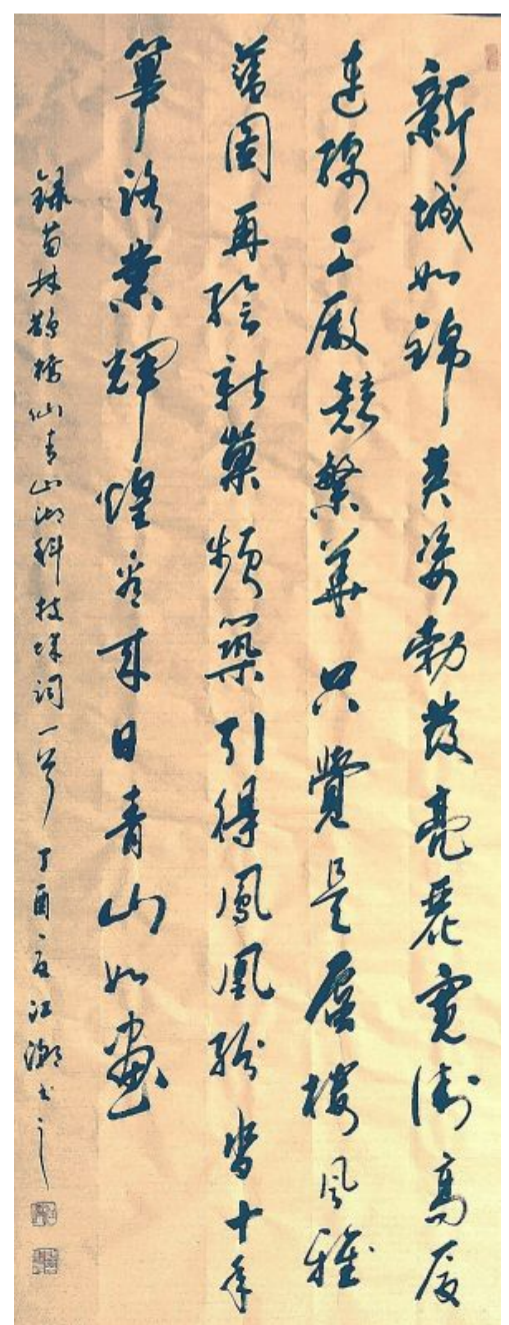 新城如錦英姿勃發亮麗寬街高厦
連綿工廠競繁華只覺是蜃樓風雅
圖再繪新巢頻築引得鳳凰紛沓十年
篳路業輝煌看來日青山如畫
錄苗林鵲橋仙青山湖科技城詞一首丁酉夏江潮書之